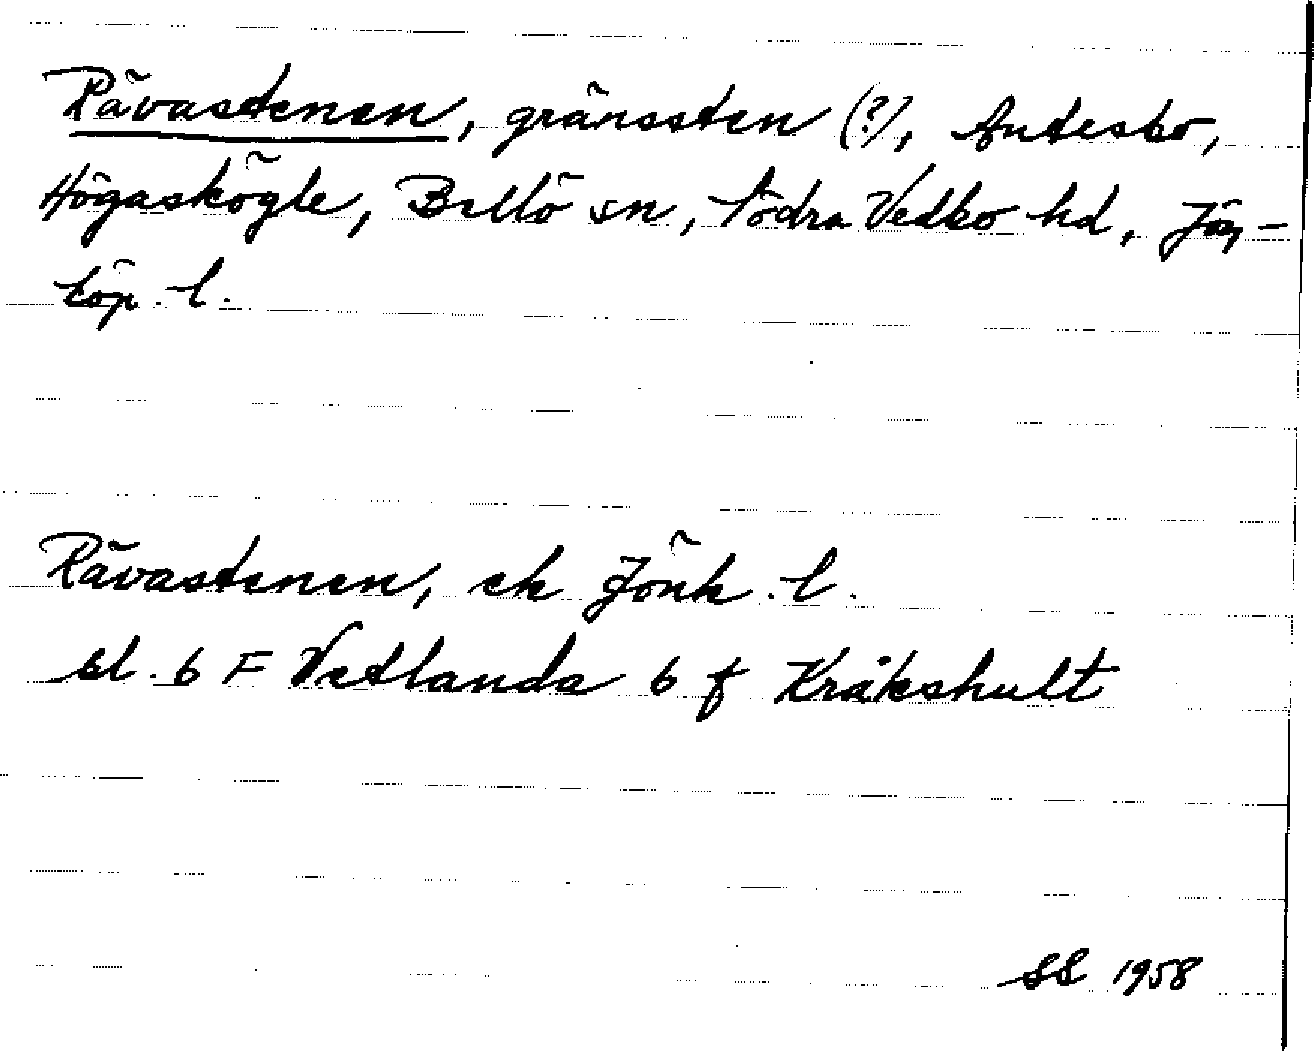 Rävastenen, gränssten (?), Antesbo,
Högaskögle, Bellö sn, Södra Vedbo hd, Jön-
köp. l.
Rävastenen, ek Jönk. l.
bl. 6 F Vetlanda 6 f Kråkshult
SS 1958